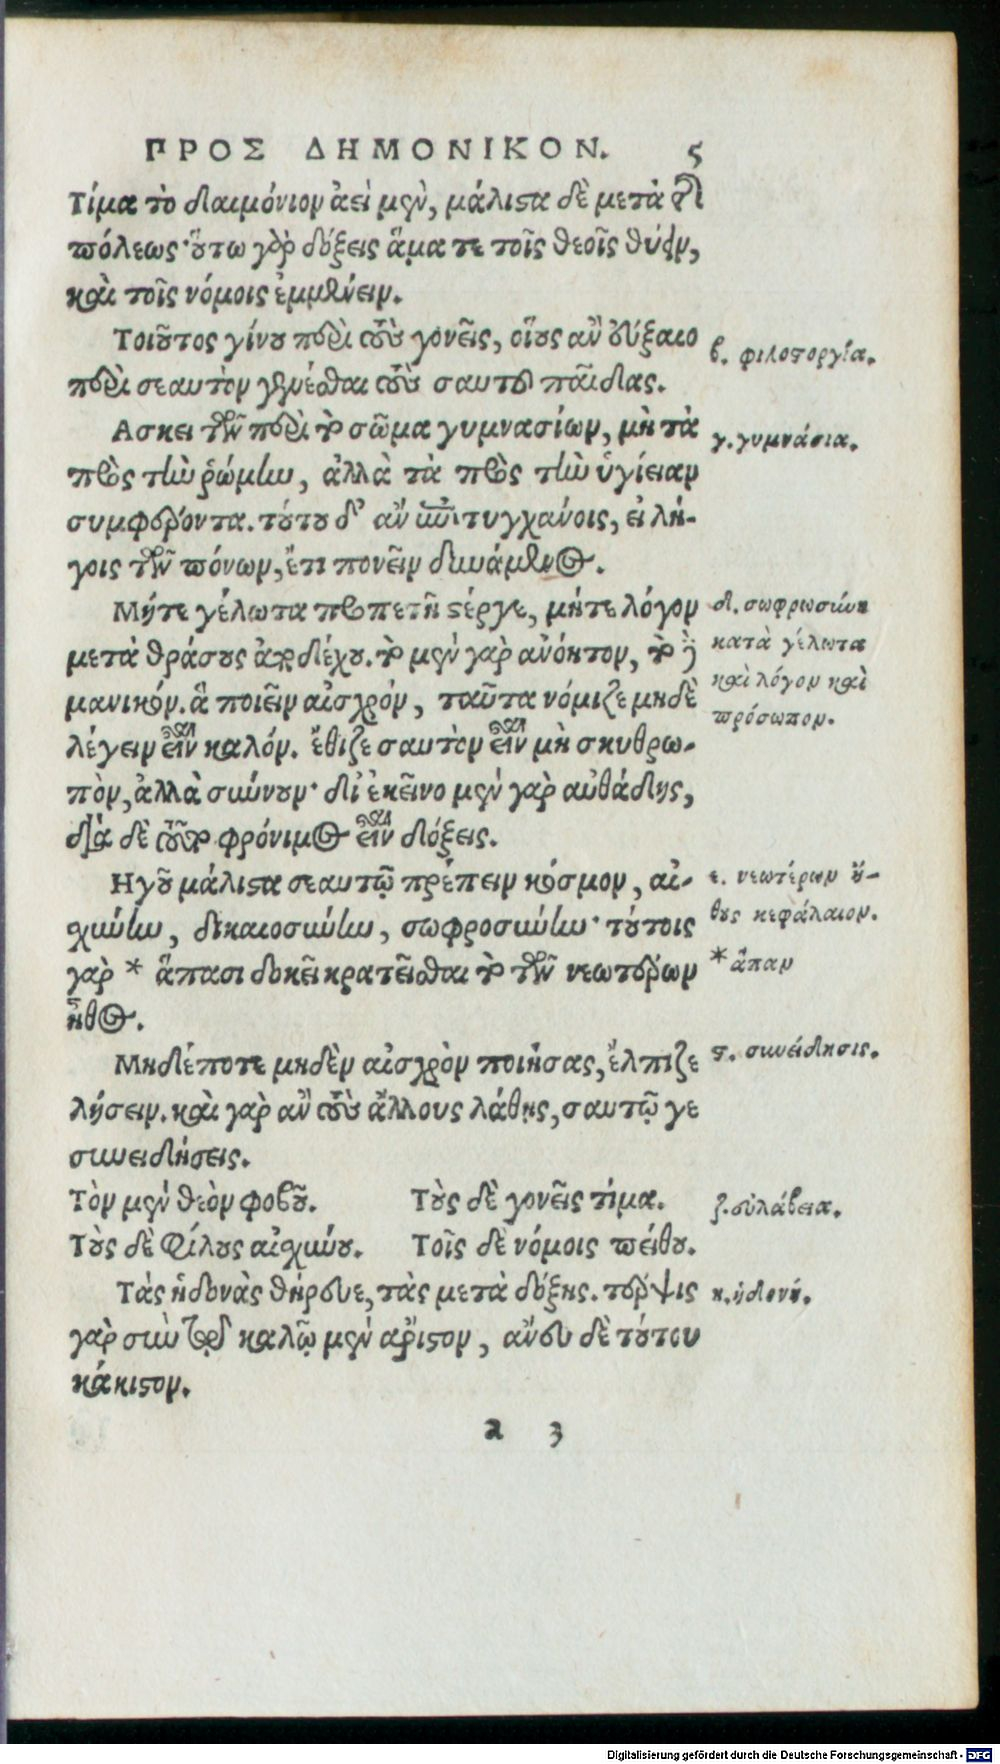 ΠΡΟΣ ΔΗΜΟΝΙΚΟΝ. 5
Τίμα τὸ δαιμόνιον ἀεὶ μὲν, μάλιστα δὲ μετὰ τῆς
πόλεως· οὕτω γὰρ δόξεις ἅμα τε τοῖς θεοῖς θύειν,
καὶ τοῖς νόμοις ἐμμένειν.
Τοιοῦτος γίνου περὶ τοὺς γονεῖς, οἵους ἂν εὔξαιο
περὶ σεαυτὸν γενέσθαι τοὺς σαυτοῦ παῖδας.
Ασκει τῶν περὶ τὸ σῶμα γυμνασίων, μὴ τὰ
πρὸς τὴν ῥώμην, ἀλλὰ τὰ πρὸς τὴν ὑγίειαν
συμφέροντα. τούτου δ' ἂν ἐπιτυγχάνοις, εἰ λή-
γοις τῶν πόνων, ἔτι πονεῖν δυνάμενος.
Μήτε γέλωτα προπετῆ στέργε, μήτε λόγον
μετὰ θράσους ἀποδέχου. τὸ μὲν γὰρ ἀνόητον, τὸ δὲ
μανικόν. ἃ ποιεῖν αἰσχρόν, ταῦτα νόμιζε μηδὲ
λέγειν εἶναι καλόν. ἔθιζε σαυτὸν εἶναι μὴ σκυθρω-
πὸν, ἀλλὰ σύννουν· δι' ἐκεῖνο μὲν γὰρ αὐθάδης,
διὰ δὲ τοῦτο φρόνιμος εἶναι δόξεις.
Ηγοῦ μάλιστα σεαυτῷ πρέπειν κόσμον, αἰ-
σχύνην, δικαιοσύνην, σωφροσύνην· τούτοις
γὰρ * ἅπασι δοκεῖ κρατεῖσθαι τὸ τῶν νεωτέρων
ἦθος.
Μηδέποτε μηδὲν αἰσχρὸν ποιήσας, ἔλπιζε
λήσειν. καὶ γὰρ ἂν τοὺς ἄλλους λάθῃς, σαυτῷ γε
συνειδήσεις.
Τὸν μὲν θεὸν φοβοῦ. Τοὺς δὲ γονεῖς τίμα.
Τοὺς δὲ φίλους αἰσχύνου. Τοῖς δὲ νόμοις πείθου.
Τὰς ἡδονὰς θήρευε, τὰς μετὰ δόξης. τέρψις
γὰρ σὺν τῷ καλῷ μὲν ἄριστον, ἄνευ δὲ τούτου
κάκιστον.
a 3
β. φιλοστοργία.
γ. γυμνάσια.
δ. σωφροσύνη
κατὰ γέλωτα
καὶ λόγον καὶ
πρόσωπον.
ε. νεωτέρων ἤ-
θους κεφάλαιον.
* ἅπαν
ϛ. συνείδησις.
ζ. εὐλάβεια.
η. ἡδονή.
Digitalisierung gefördert durch die Deutsche Forschungsgemeinschaft - DFG